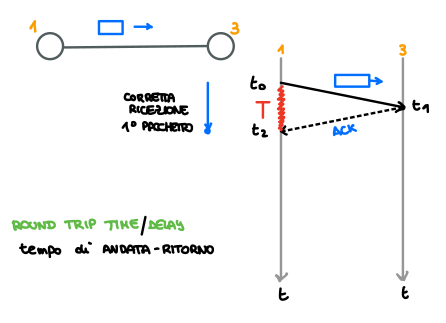 1
3
CORRETTA
RICEZIONE
1° PACCHETTO
1
3
t0
T
t1
t2
ACK
ROUND TRIP TIME/DELAY
tempo di ANDATA-RITORNO
t
t